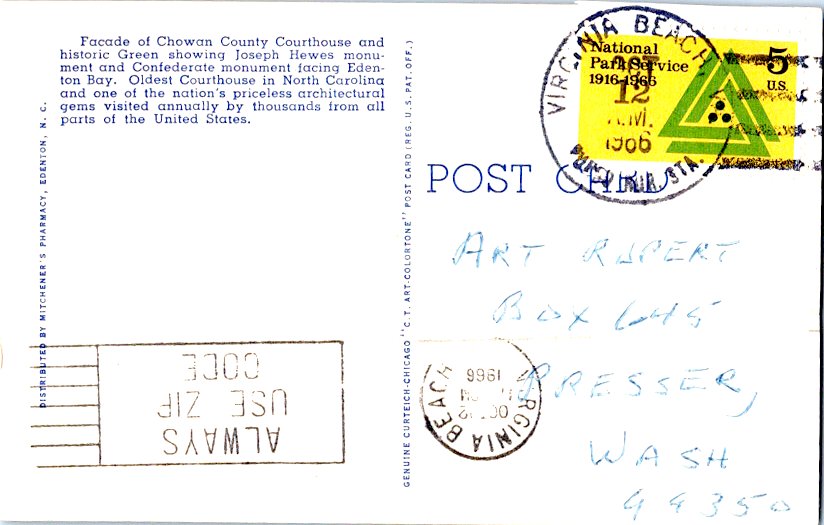 Facade of Chowan County Courthouse and
historic Green showing Joseph Hewes monu-
ment and Confederate monument facing Eden-
ton Bay. Oldest Courthouse in North Carolina
and one of the nation's priceless architectural
gems visited annually by thousands from all
parts of the United States.
DISTRIBUTED BY MITCHENER'S PHARMACY, EDENTON, N. C.
GENUINE CURTEICH-CHICAGO "C. T. ART-COLORTONE" POST CARD (REG. U. S. PAT. OFF.)
National
Park Service
1916-1966
5
U.S.
VIRGINIA BEACH,
12
A.M.
1966
STA.
POST CARD
ART RUPERT
BOX 645
PRESSER,
WASH
99350
VIRGINIA BEACH
OCT 12
1966
ALWAYS
USE ZIP
CODE